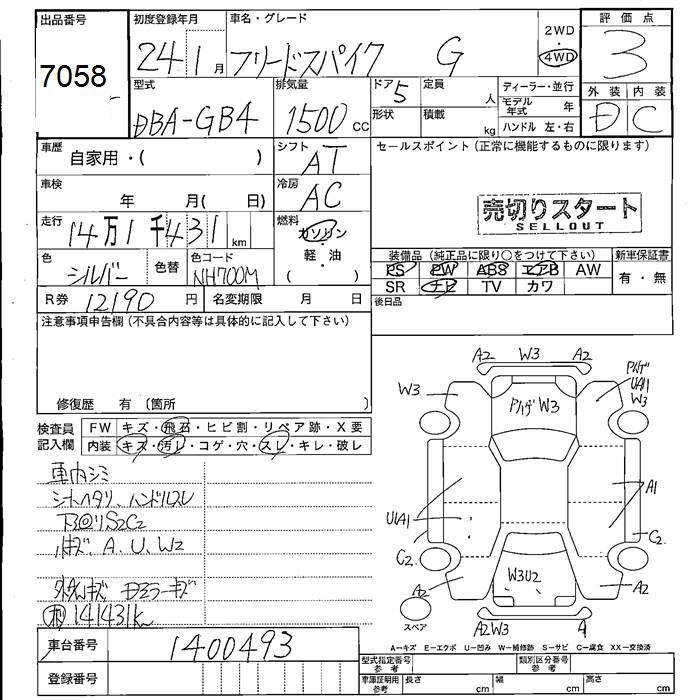 出品番号 7058
初度登録年月 24年1月
車名・グレード フリードスパイク G
2WD・4WD
評価点 3
型式 DBA-GB4
排気量 1500 CC
ドア 5
形状
定員 人
積載 kg
ディーラー・並行
モデル年式 年
ハンドル 左・右
外装 D
内装 C
車歴 自家用・( )
シフト AT
セールスポイント (正常に機能するものに限ります)
車検 年 月( 日)
冷房 AC
売切りスタート
SELLOUT
走行 14万1千431 km
燃料 ガソリン・軽油( )
色 シルバー
色替
色コード NH700M
装備品 (純正品に限り○をつけて下さい)
新車保証書 有・無
PS PW ABS エアB AW
SR ナビ TV カワ
R券 12190 円
名変期限 月 日
後日品
注意事項申告欄(不具合内容等は具体的に記入して下さい)
修復歴 有 〔箇所 〕
検査員記入欄
FW キズ・飛石・ヒビ割・リペア跡・X要
内装 キズ・汚レ・コゲ・穴・スレ・キレ・破レ
車内シミ
シートヘタリ、ハンドルスレ
下回リS2C2
小キズ、A、U、W2
141431km
車台番号 1400493
登録番号
A2 W3 A2
W3
ハゲ W3
ハゲ
UA1
W3
UA1
A1
C2
C2
W3U2
A2
A2
スペア
A2W3 A1
A−キズ E−エクボ U−凹み W−補修跡 S−サビ C−腐食 XX−交換済
型式指定番号 参考
類別区分番号 参考
車庫証明用 参考
長さ cm
幅 cm
高さ cm